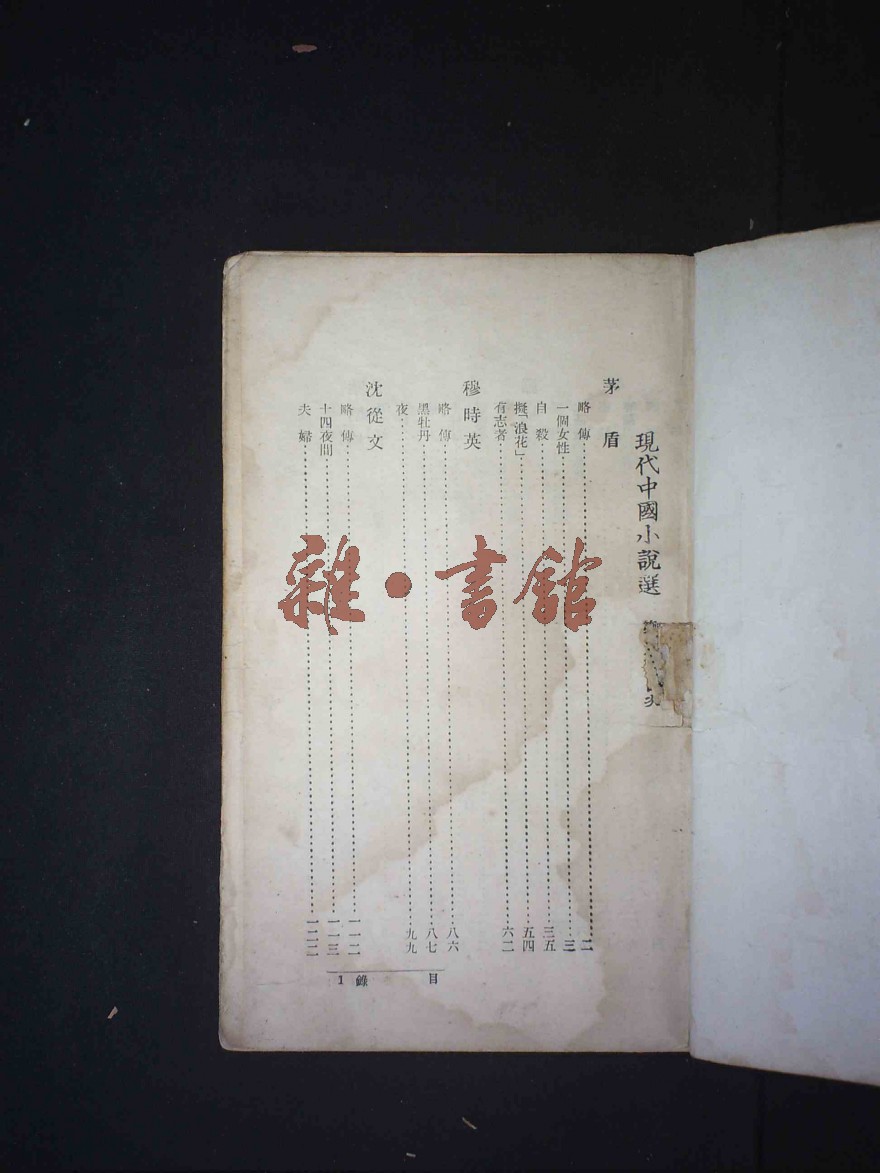 現代中國小說選
茅盾
略傳……二
一個女性……三
自殺……三五
擬「浪花」……五四
有志著……六二
穆時英
略傳……八六
黑牡丹……八七
夜……九九
沈從文
略傳……一一二
十四夜間……一一三
夫婦……一二二
目錄 1
雜·書館